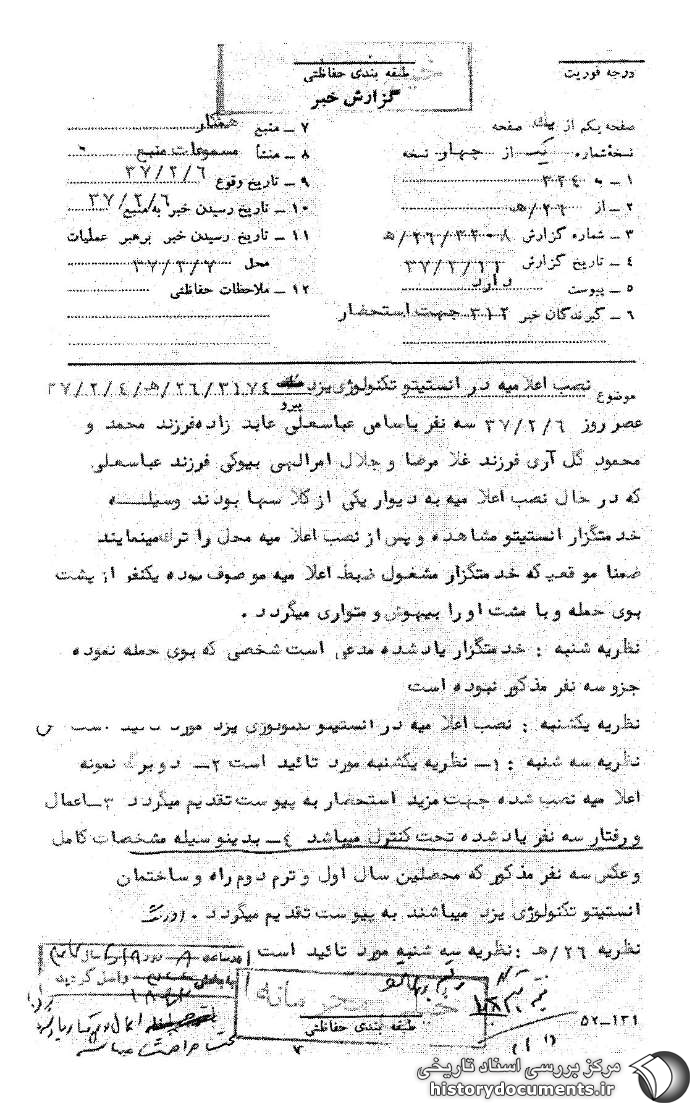 درجه فوریت
طبقه بندی حفاظتی
گزارش خبر
صفحه یکم از یک صفحه
نسخه شماره یک از چهار نسخه
۱ – به ۳۲۴
۲ – از ۲۶/ه
۳ – شماره گزارش ۲۶/۳۲۰۸/ه
۴ – تاریخ گزارش
۵ – پیوست دارد
۶ – گیرندگان خبر ۳۱۲ جهت استحضار
۷ – منبع
۸ – منشأ مسموعات منبع
۹ – تاریخ وقوع ۳۷/۲/۶
۱۰ – تاریخ رسیدن خبر به منبع ۳۷/۲/۶
۱۱ – تاریخ رسیدن خبر برهبر عملیات
محل ۳۷/۲/۷
۱۲ – ملاحظات حفاظتی
موضوع نصب اعلامیه در انستیتو تکنولوژی یزد
پیرو ۲۶/۳۱۷۴/ه – ۳۷/۲/۴
عصر روز ۳۷/۲/۶ سه نفر باسامی عباسعلی عابد زاده فرزند محمد و
محمود گل آری فرزند غلامرضا و جلال امرالهی بیوکی فرزند عباسعلی
که در حال نصب اعلامیه به دیوار یکی از کلاسها بودند وسیله
خدمتگزار انستیتو مشاهده و پس از نصب اعلامیه محل را ترک مینمایند
ضمنا موقعیکه خدمتگزار مشغول ضبط اعلامیه موصوف بوده یکنفر از پشت
بوی حمله و با مشت او را بیهوش و متواری میگردد .
نظریه شنبه : خدمتگزار یاد شده مدعی است شخصی که بوی حمله نموده
جزو سه نفر مذکور نبوده است
نظریه یکشنبه : نصب اعلامیه در انستیتو تکنولوژی یزد مورد تائید است
نظریه سه شنبه : ۱– نظریه یکشنبه مورد تائید است ۲– دو برگ نمونه
اعلامیه نصب شده جهت مزید استحضار به پیوست تقدیم میگردد ۳– اعمال
و رفتار سه نفر یاد شده تحت کنترل میباشد ۴– بدینوسیله مشخصات کامل
و عکس سه نفر مذکور که محصلین سال اول و ترم دوم راه و ساختمان
انستیتو تکنولوژی یزد میباشند به پیوست تقدیم میگردد .
نظریه ۲۶/ه : نظریه سه شنبه مورد تائید است
واصل گردید
طبقه بندی حفاظتی
۵۲–۱۳۱
مرکز بررسی اسناد تاریخی
historydocuments.ir